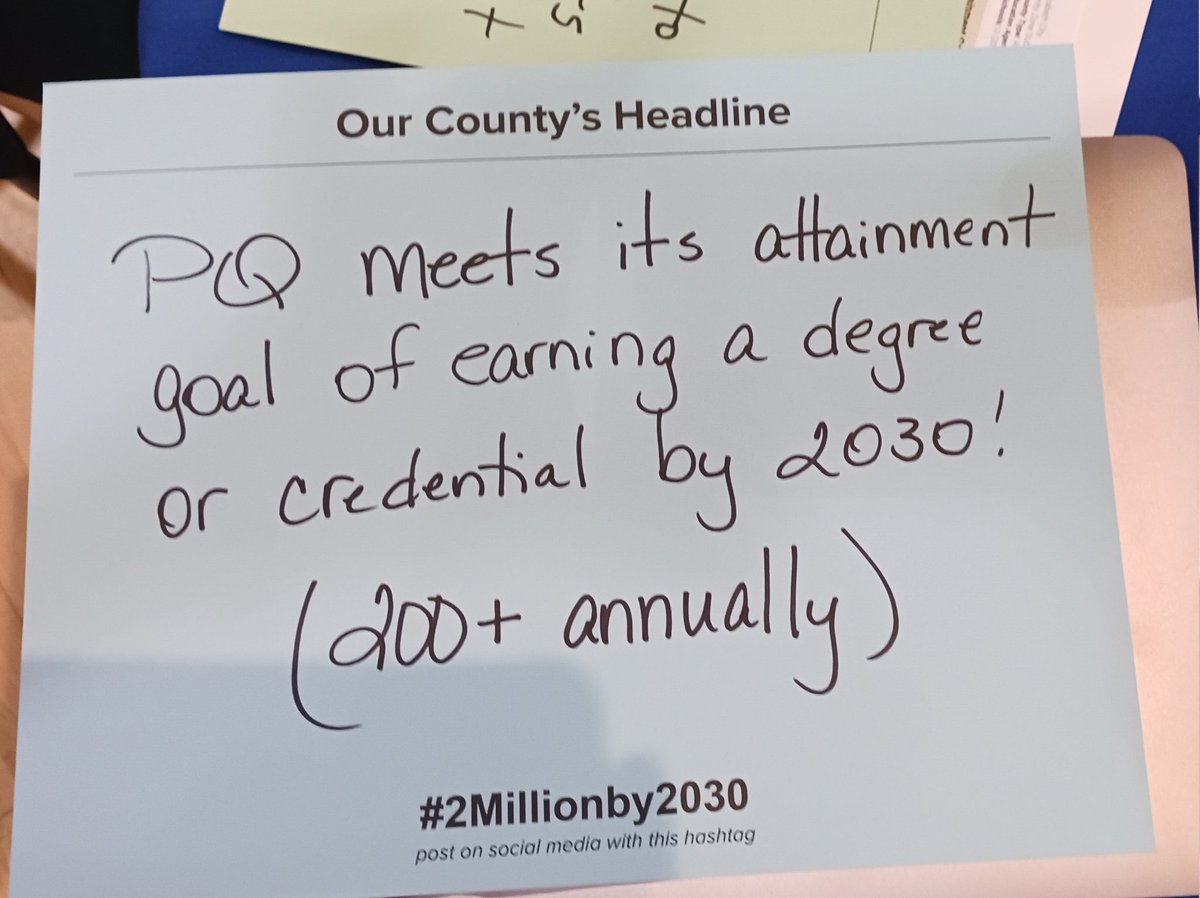 Our County's Headline
PQ meets its attainment
goal of earning a degree
or credential by 2030!
(200+ annually)
#2Millionby2030
post on social media with this hashtag